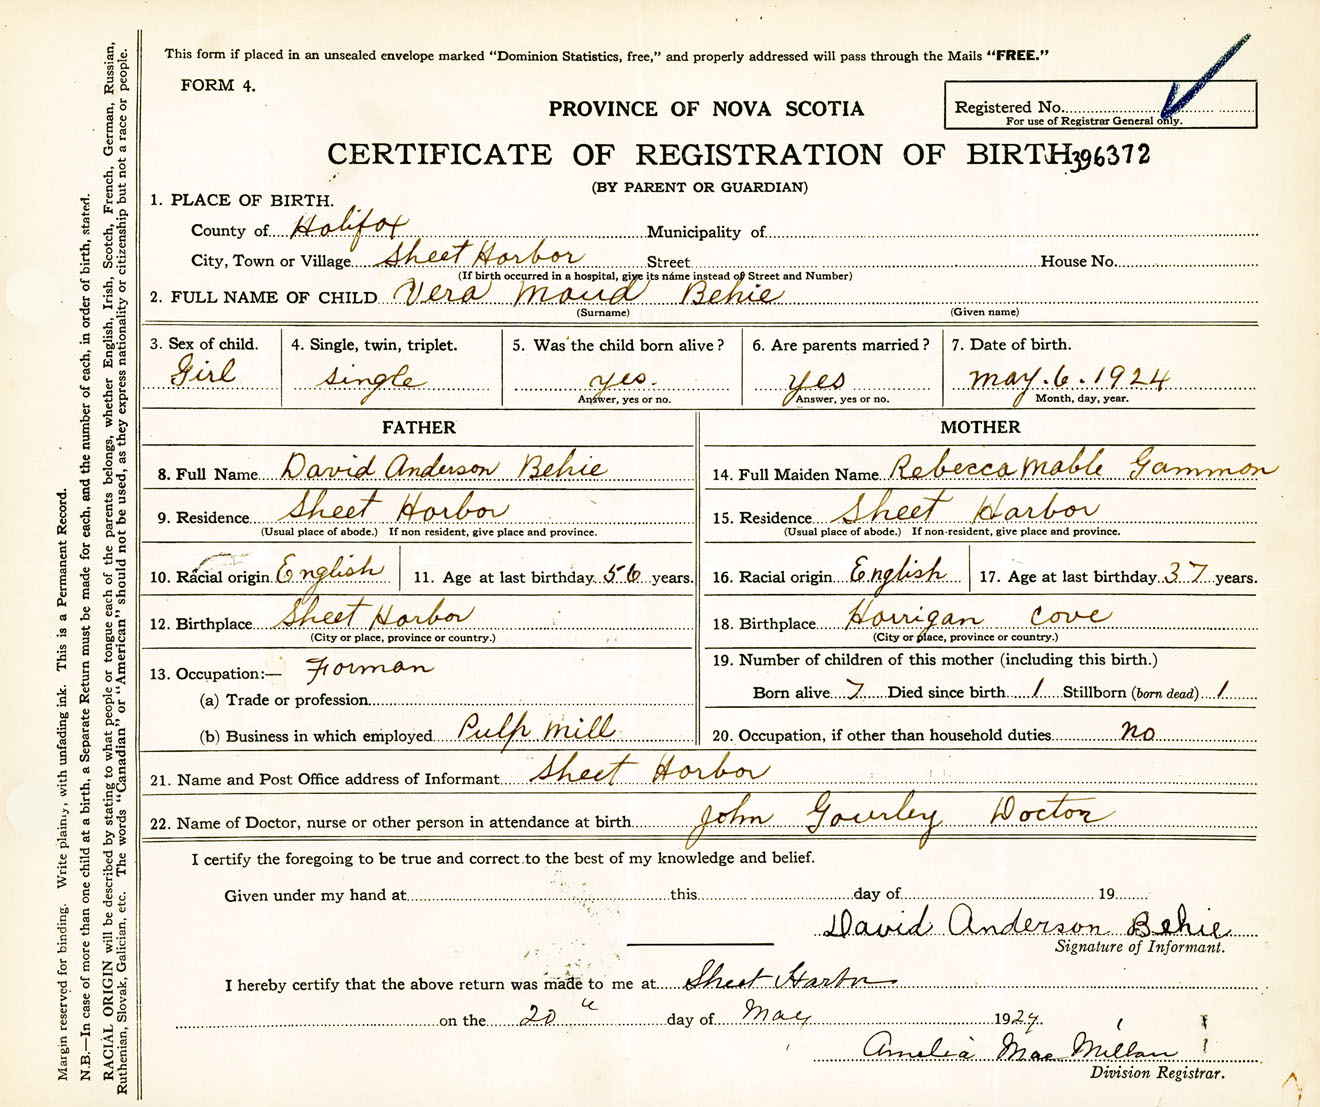 This form if placed in an unsealed envelope marked “Dominion Statistics, free,” and properly addressed will pass through the Mails “FREE.”
FORM 4.
PROVINCE OF NOVA SCOTIA
Registered No.
For use of Registrar General only.
CERTIFICATE OF REGISTRATION OF BIRTH 396372
(BY PARENT OR GUARDIAN)
1. PLACE OF BIRTH.
County of Halifax Municipality of
City, Town or Village Sheet Harbor Street House No.
(If birth occurred in a hospital, give its name instead of Street and Number)
2. FULL NAME OF CHILD Vera Maud Behie
(Surname) (Given name)
3. Sex of child. 4. Single, twin, triplet. 5. Was the child born alive? 6. Are parents married? 7. Date of birth.
Girl single yes. yes may. 6. 1924
Answer, yes or no. Answer, yes or no. Month, day, year.
FATHER MOTHER
8. Full Name David Anderson Behie 14. Full Maiden Name Rebecca Mable Gammon
9. Residence Sheet Harbor 15. Residence Sheet Harbor
(Usual place of abode.) If non resident, give place and province. (Usual place of abode.) If non-resident, give place and province.
10. Racial origin English 11. Age at last birthday 56 years. 16. Racial origin English 17. Age at last birthday 37 years.
12. Birthplace Sheet Harbor 18. Birthplace Harrigan Cove
(City or place, province or country.) (City or place, province or country.)
13. Occupation:— Forman 19. Number of children of this mother (including this birth.)
(a) Trade or profession Born alive 7 Died since birth 1 Stillborn (born dead) 1
(b) Business in which employed Pulp Mill 20. Occupation, if other than household duties no
21. Name and Post Office address of Informant Sheet Harbor
22. Name of Doctor, nurse or other person in attendance at birth John Gourley Doctor
I certify the foregoing to be true and correct to the best of my knowledge and belief.
Given under my hand at this day of 19
David Anderson Behie
Signature of Informant.
I hereby certify that the above return was made to me at Sheet Harbor
on the 20 day of May 1924.
Amelia MacMillan
Division Registrar.
Margin reserved for binding. Write plainly, with unfading ink. This is a Permanent Record.
N.B.—In case of more than one child at a birth, a Separate Return must be made for each, and the number of each, in order of birth, stated.
RACIAL ORIGIN will be described by stating to what people or tongue each of the parents belongs, whether English, Irish, Scotch, French, German, Russian,
Ruthenian, Slovak, Galician, etc. The words “Canadian” or “American” should not be used, as they express nationality or citizenship but not a race or people.